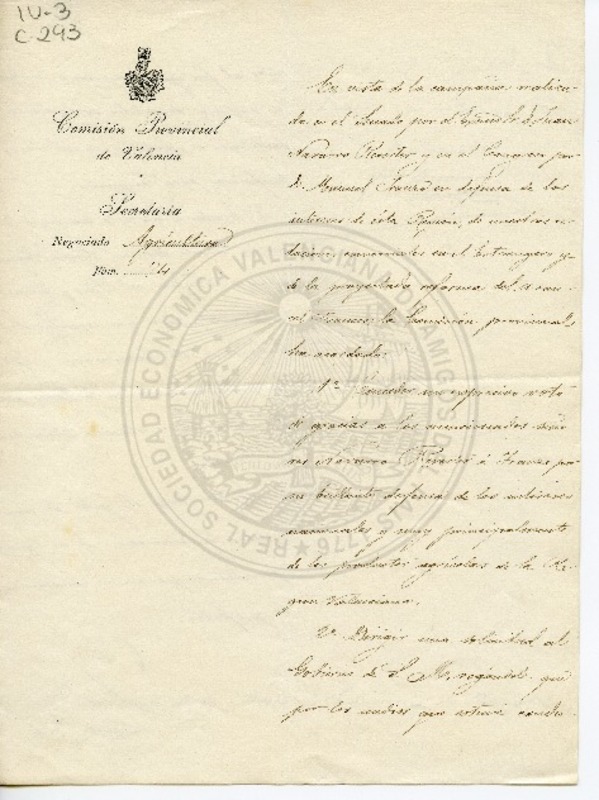 IV-3
C-293
Comisión Provincial
de Valencia
Secretaría
Negociado Agricultura
Núm.
En vista de la campaña realiza-
da en el Senado por el Excmo. Sr. D. Juan
Navarro Reverter y en el Congreso por
D. Manuel en defensa de los
intereses de esta Región, de nuestras re-
laciones comerciales en el Extranjero y
de la proyectada reforma del
Francés, la Comisión provincial
ha acordado:
1º Conceder un expresivo voto
de gracias a los mencionados Seño-
res Navarro Reverter é por
su brillante defensa de los intereses
nacionales y muy principalmente
de los productos agrícolas de la Re-
gion Valenciana.
2º Dirigir una solicitud al
Gobierno de S. M. rogándole que
por los medios que estime
REAL SOCIEDAD ECONOMICA VALENCIANA DE AMIGOS DEL PAIS
1776